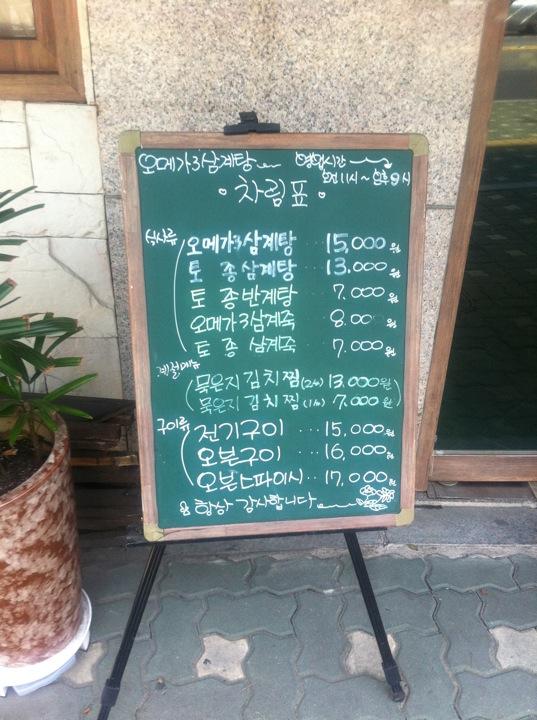 오메가3삼계탕
영업시간
오전11시~오후9시
차림표
식사류
오메가3삼계탕 ··· 15,000원
토종삼계탕 ··· 13,000원
토종반계탕 ··· 7,000원
오메가3삼계죽 8,000원
토종삼계죽 ··· 7,000원
계절메뉴
묵은지김치찜(2인) 13,000원
묵은지김치찜(1인) 7,000원
구이류
전기구이 ··· 15,000원
오븐구이 ··· 16,000원
오븐스파이시 ·· 17,000원
항상 감사합니다